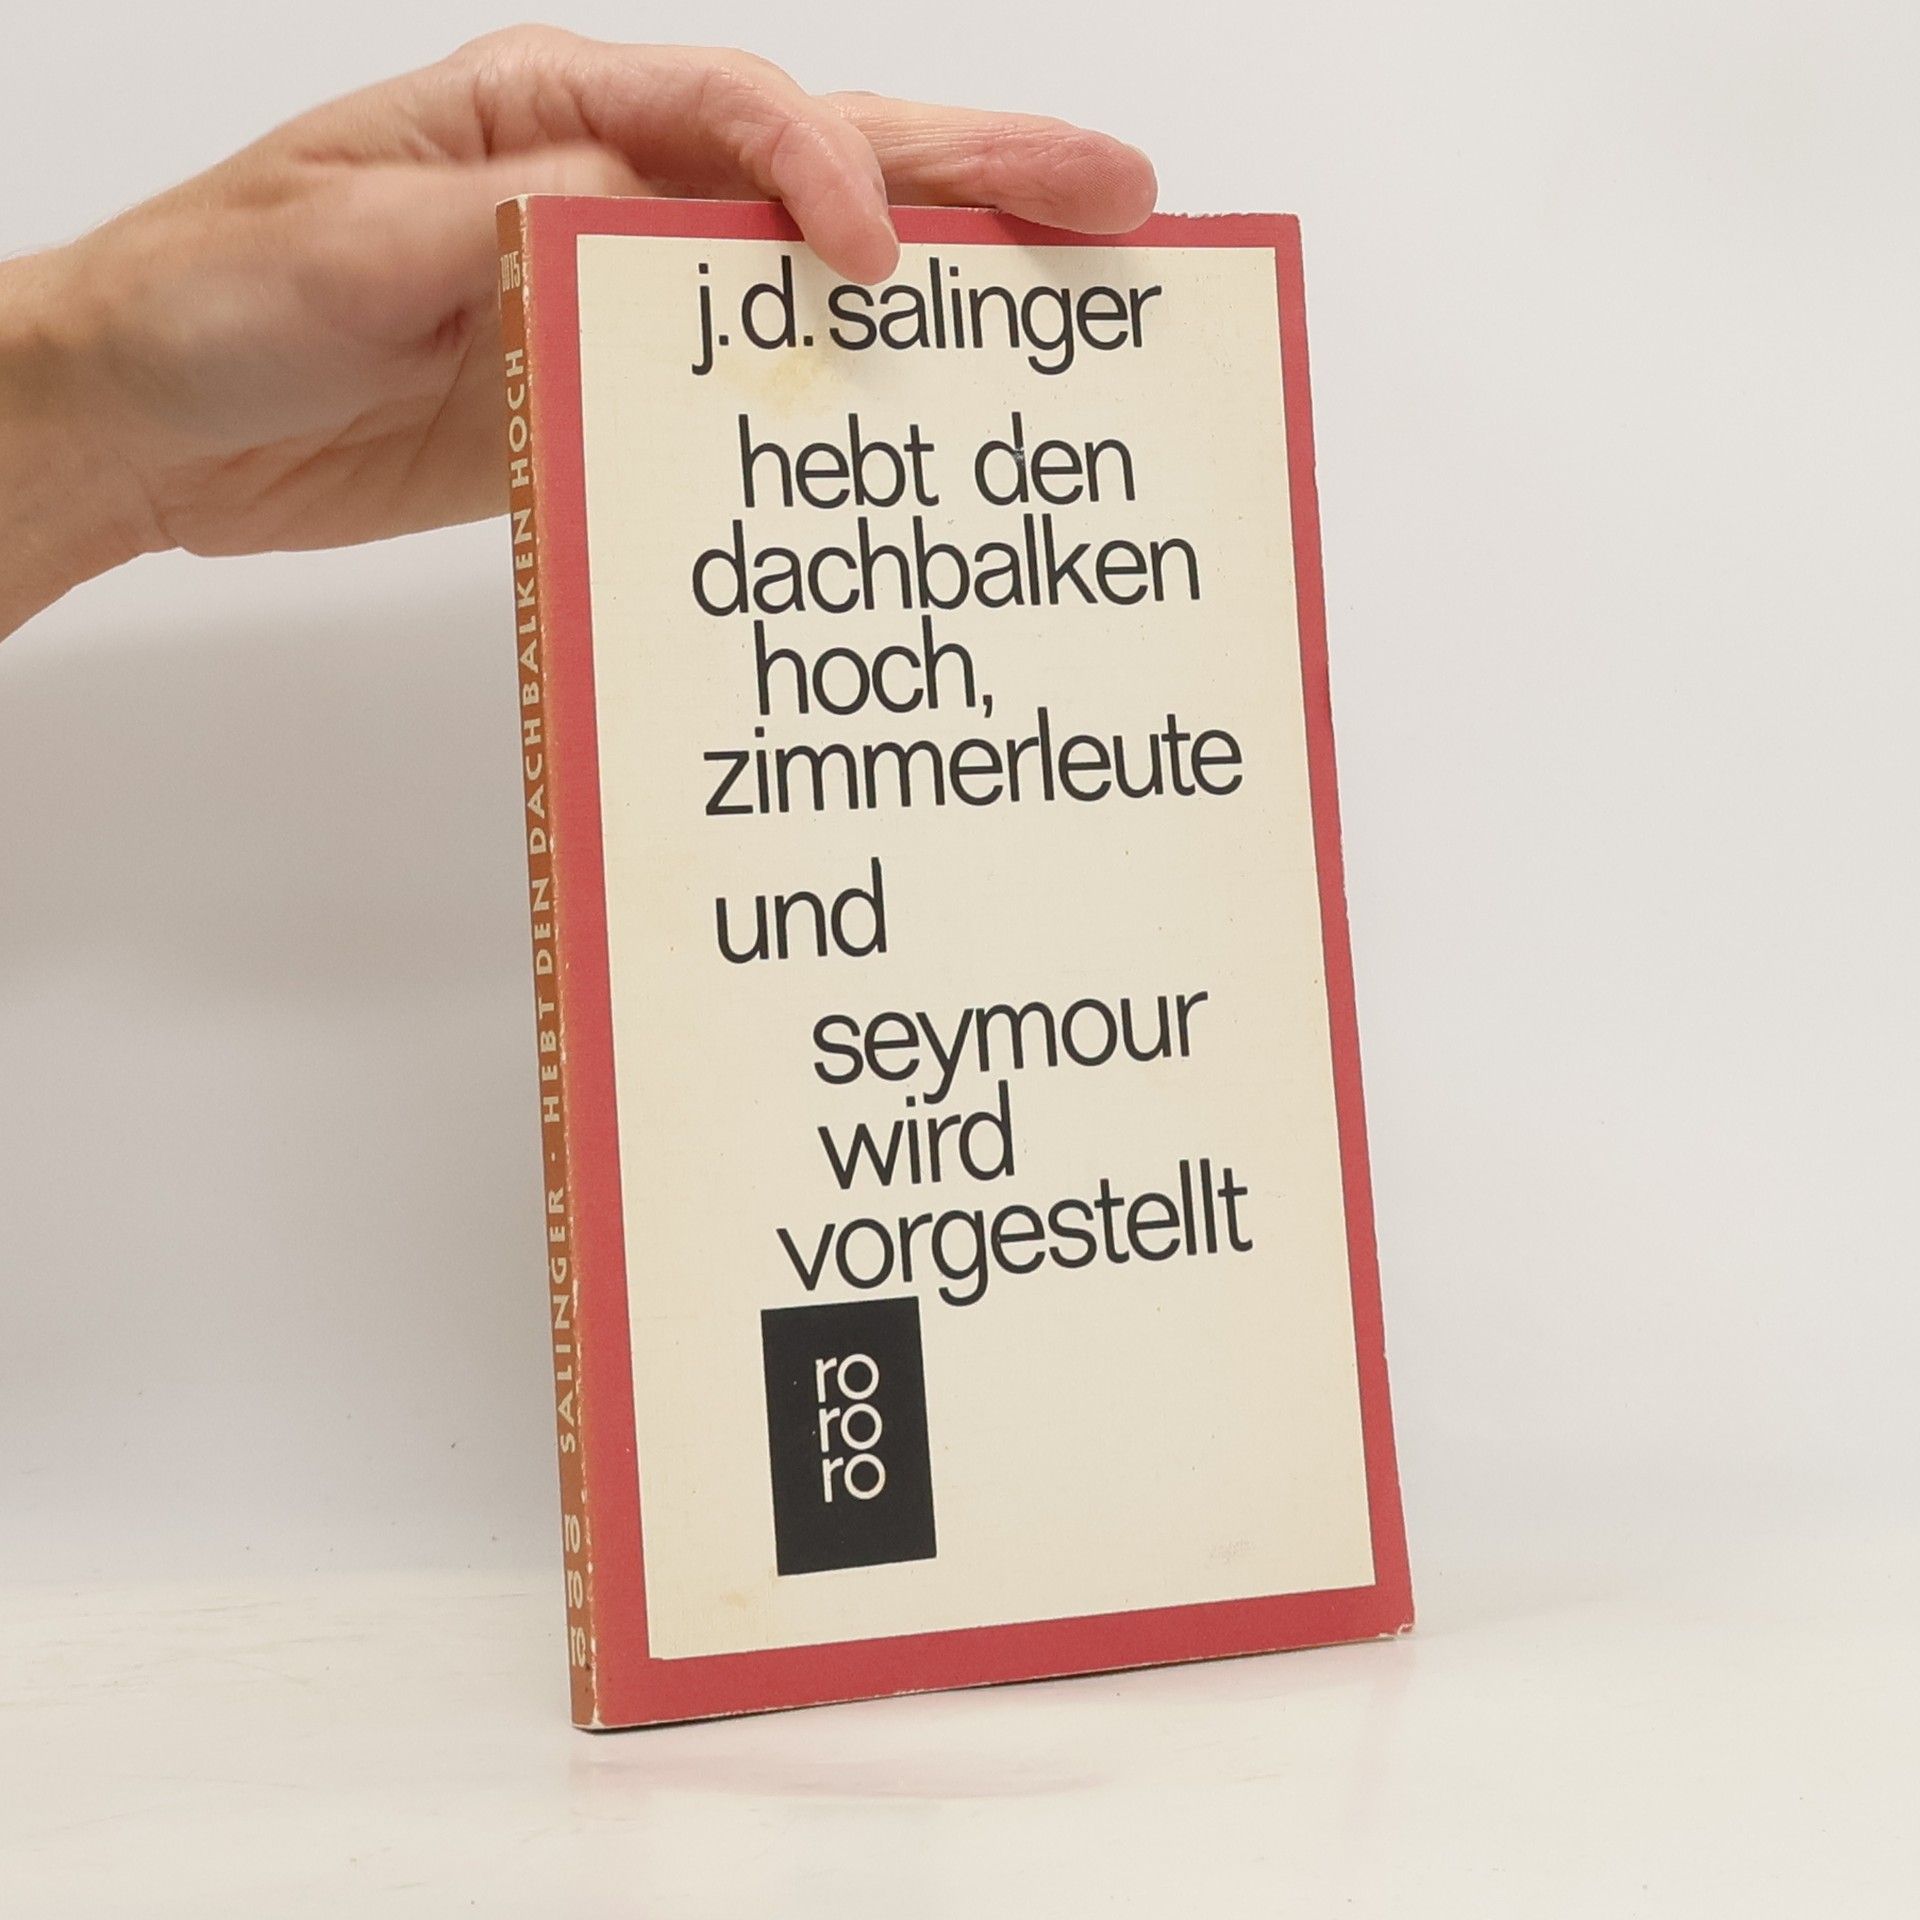 j.d. salinger
hebt den
dachbalken
hoch,
zimmerleute
und
seymour
wird
vorgestellt
ro
ro
ro
SALINGER · HEBT DEN DACHBALKEN HOCH
ro
ro
ro